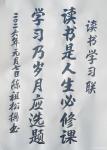 读书学习联
读书是人生必修课
学习乃岁月应选题
二〇二六年元月七日陈祖松撰书